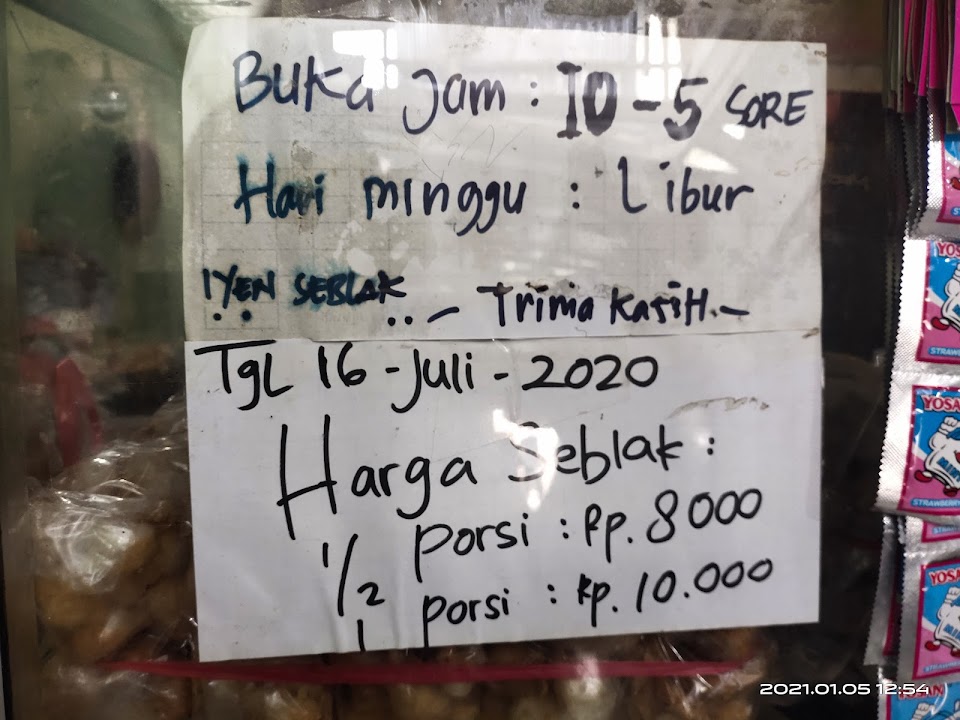 Buka Jam : 10 - 5 SORE
Hari minggu : Libur
IYEN SEBLAK
- Trima KasiH. -
TgL 16 - Juli - 2020
Harga Seblak :
1/2 porsi : Rp. 8000
1 porsi : Rp. 10.000
YOSAN
STRAWBERRY
YOSAN
STRAWBERRY
YOSAN
YOSAN
2021.01.05 12:54